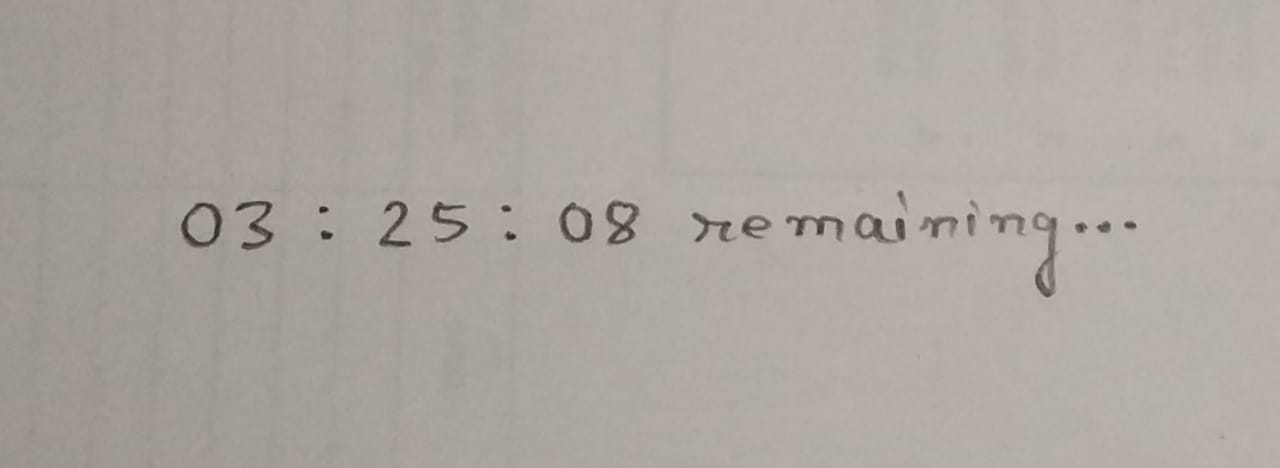 03 : 25 : 08 remaining...